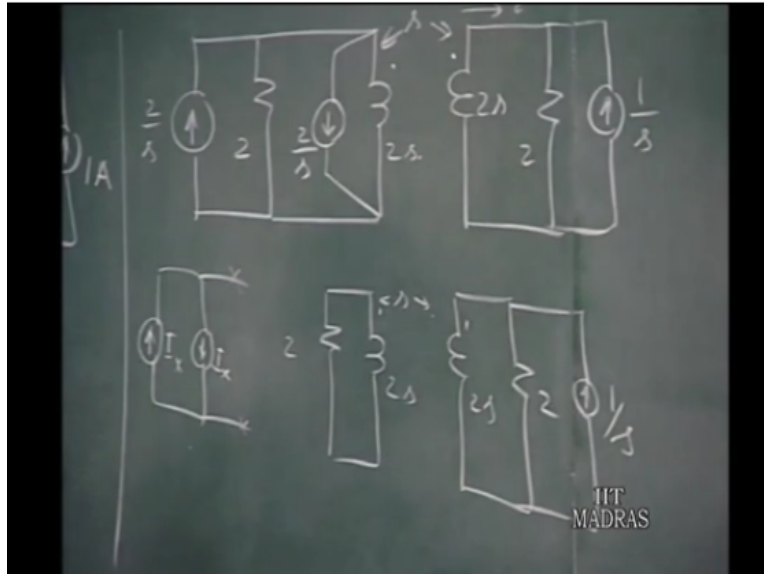 s
2/s
2
2/s
2s
2s
2
1/s
1A
Ix
Ix
2
s
2s
2s
2
1/s
IIT
MADRAS